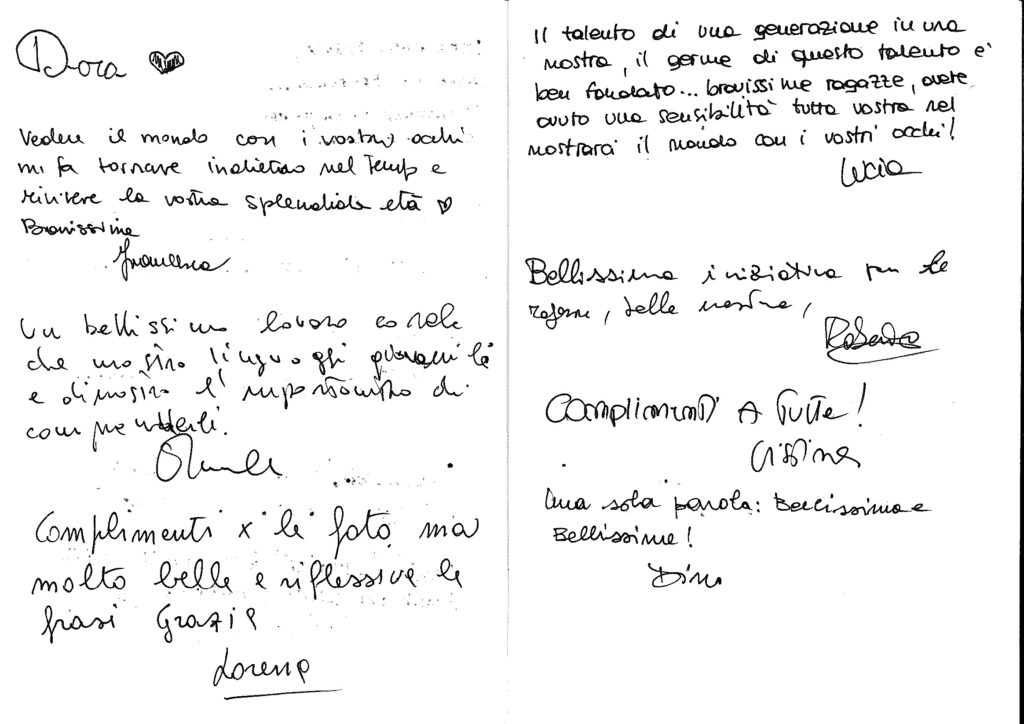 Dora
Vedere il mondo con i vostri occhi
mi fa tornare indietro nel Tempo e
rivivere la vostra splendida età
Bravissime
Francesca
Un bellissimo lavoro corale
che mostra linguaggi giovanili
e dimostra l'importanza di
comprenderli.
Complimenti x le foto ma
molto belle e riflessive le
frasi Grazie
Lorena
Il talento di una generazione in una
mostra, il germe di questo talento è
ben fondato... bravissime ragazze, avete
avuto una sensibilità tutta vostra nel
mostrarci il mondo con i vostri occhi!
Lucia
Bellissima iniziativa per le
ragazze, bella mostra,
COMPLIMENTI A TUTTE!
Cristina
Una sola parola: Bellissima e
Bellissime!
Dino